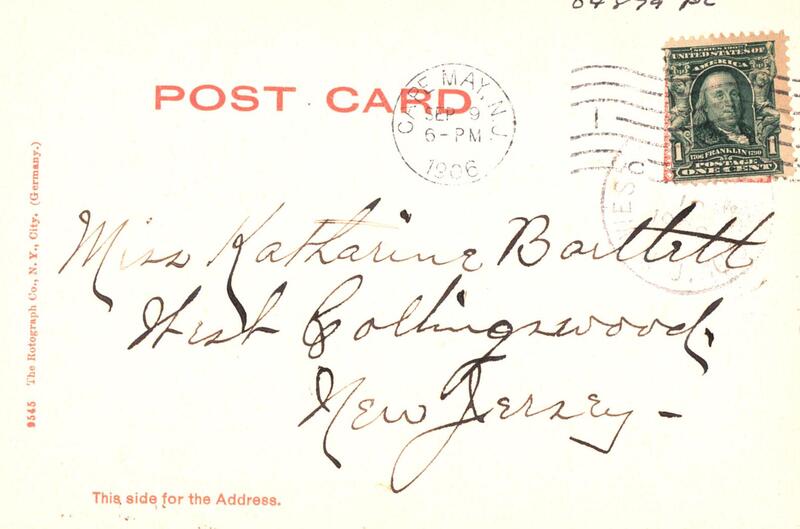 POST CARD
CAPE MAY, N.J.
SEP 9
6-PM
1906
1
SERIES 1902
UNITED STATES OF
AMERICA
1706 FRANKLIN 1790
1 1
POSTAGE
ONE CENT
Miss Katharine Bartlett
West Collingswood,
New Jersey -
9545 The Rotograph Co., N. Y., City. (Germany.)
This side for the Address.